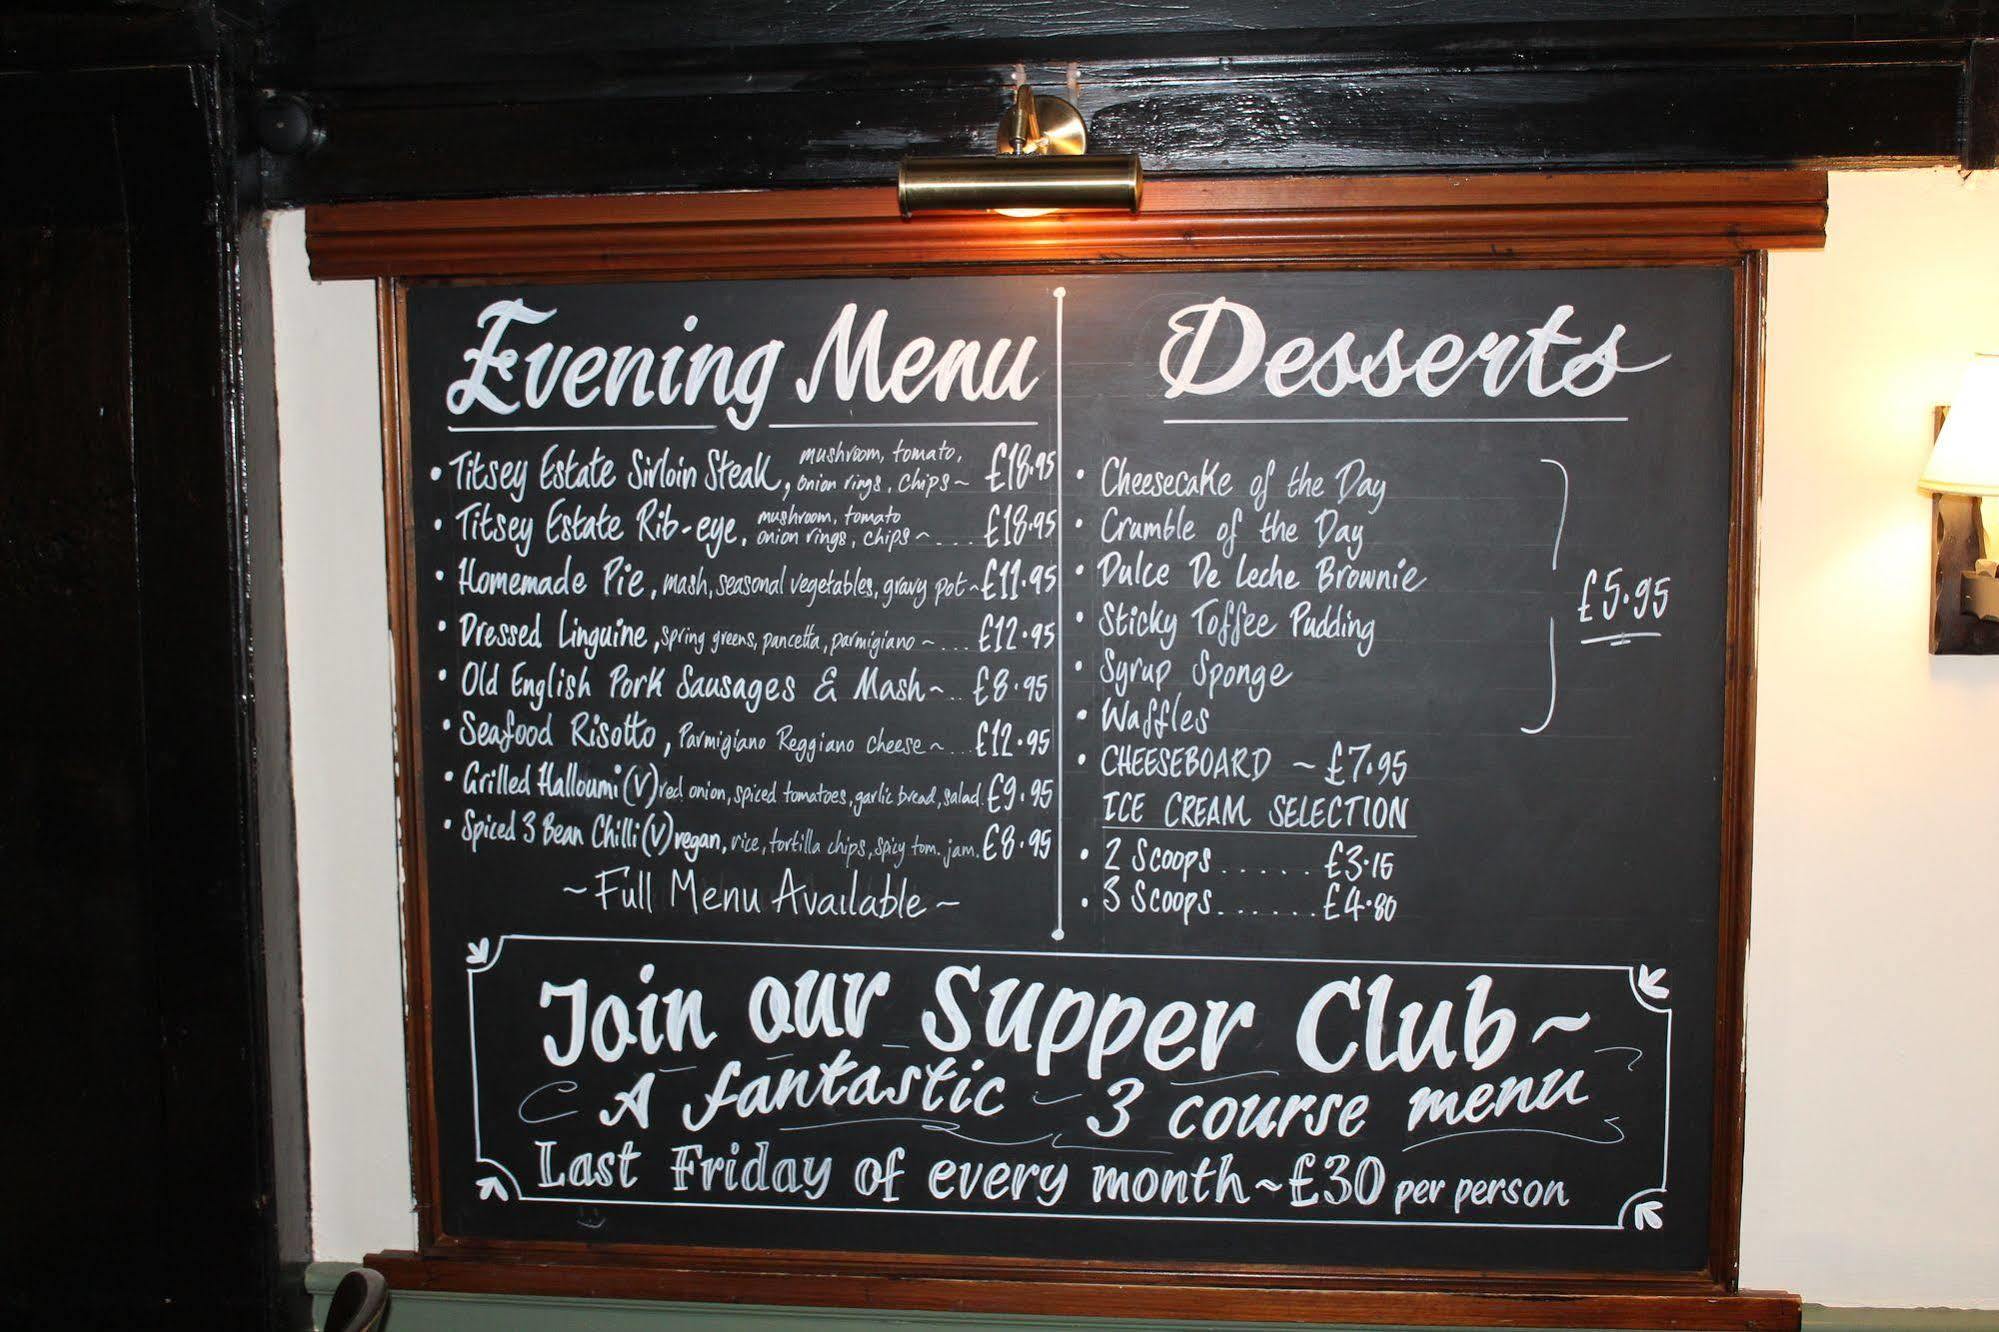 Evening Menu
• Titsey Estate Sirloin Steak, mushroom, tomato, onion rings, chips ~ £18.95
• Titsey Estate Rib-eye, mushroom, tomato onion rings, chips ~ .... £18.95
• Homemade Pie, mash, seasonal vegetables, gravy pot ~ £11.95
• Dressed Linguine, spring greens, pancetta, parmigiano ~ .... £12.95
• Old English Pork Sausages & Mash ~ .. £8.95
• Seafood Risotto, Parmigiano Reggiano cheese ~ ... £12.95
• Grilled Halloumi (V) red onion, spiced tomatoes, garlic bread, salad. £9.95
• Spiced 3 Bean Chilli (V) vegan, rice, tortilla chips, spicy tom. jam. £8.95
~ Full Menu Available ~
Desserts
• Cheesecake of the Day
• Crumble of the Day
• Dulce De Leche Brownie
• Sticky Toffee Pudding
• Syrup Sponge
• Waffles
£5.95
• CHEESEBOARD ~ £7.95
ICE CREAM SELECTION
• 2 Scoops ...... £3.15
• 3 Scoops ....... £4.80
Join our Supper Club ~
A fantastic ~ 3 course menu
Last Friday of every month ~ £30 per person